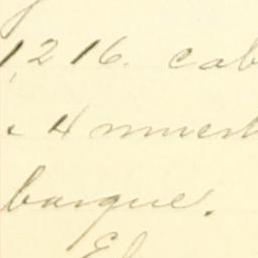 1,216. cab
4 muest
barque.
El